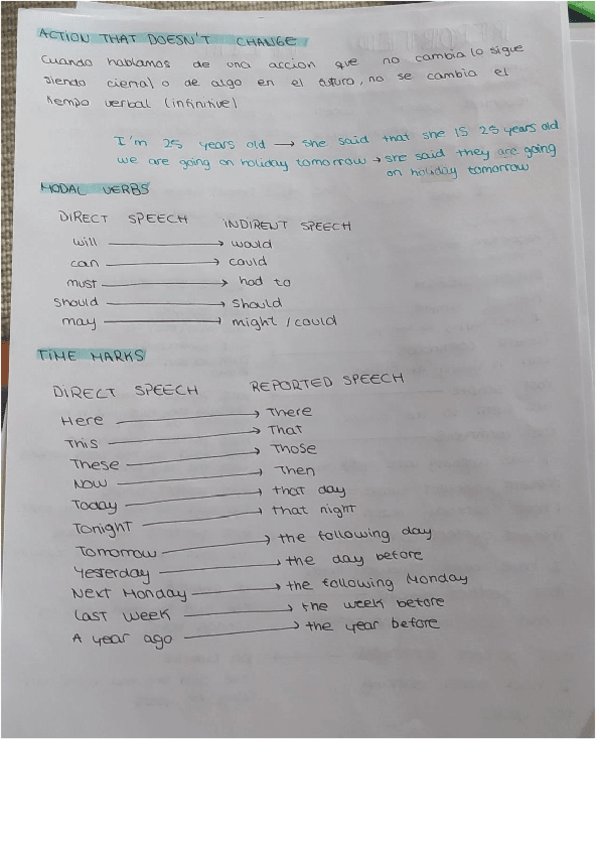 ACTION THAT DOESN'T CHANGE
Cuando hablamos de una accion que no cambia lo sigue
siendo cierta) o de algo en el futuro, no se cambia el
tiempo verbal (infinitive)
I'm 25 years old → she said that she IS 25 years old
we are going on holiday tomorrow → she said they are going
on holiday tomorrow
MODAL VERBS
DIRECT SPEECH INDIRENT SPEECH
will → would
can → could
must → had to
should → should
may → might / could
TIME MARKS
DIRECT SPEECH REPORTED SPEECH
Here → There
This → That
These → Those
Now → Then
Today → that day
Tonight → that night
Tomorrow → the following day
Yesterday → the day before
Next Monday → the following Monday
Last week → the week before
A year ago → the year before